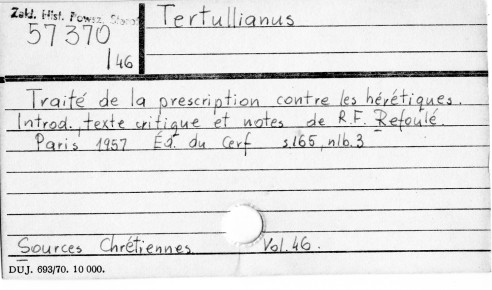 Zakł. Hist. Powsz. Staroż
57370
/46
Tertullianus
Traité de la prescription contre les hérétiques.
Introd., texte critique et notes de R.F. Refoulé.
Paris 1957 Éd. du Cerf s.165, nlb.3
Sources Chrétiennes Vol.46.
DUJ. 693/70. 10 000.